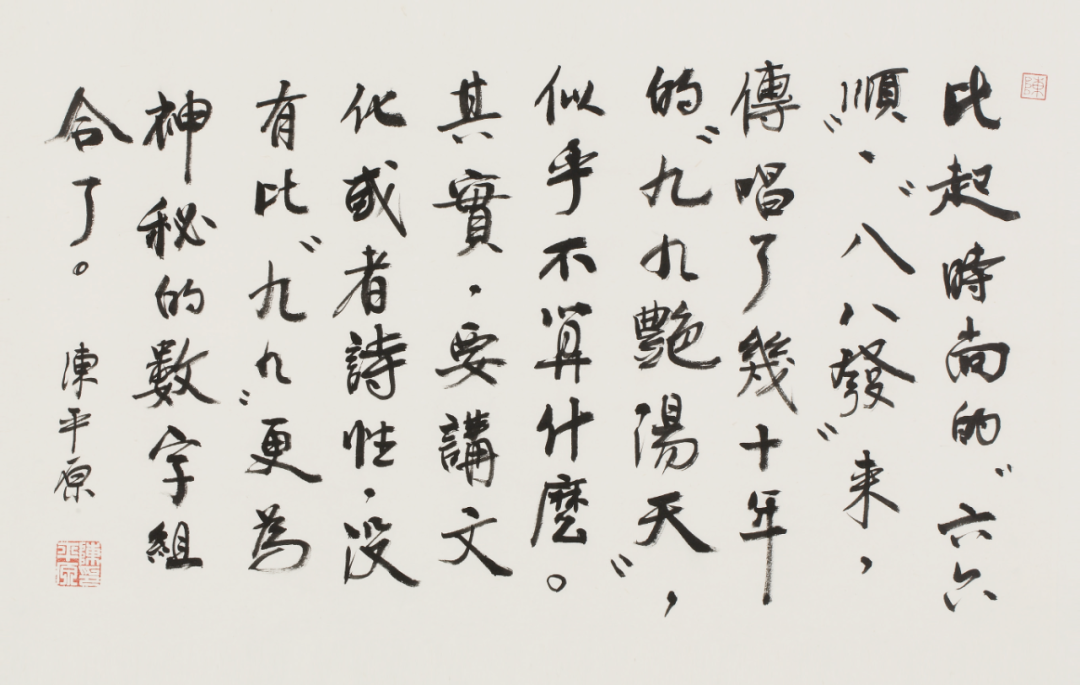 陳
比起時尚的“六六
順”、“八八發”来，
傳唱了幾十年
的“九九艷陽天”，
似乎不算什麽。
其實，要講文
化或者詩性，没
有比“九九”更為
神秘的數字組
合了。
陳平原